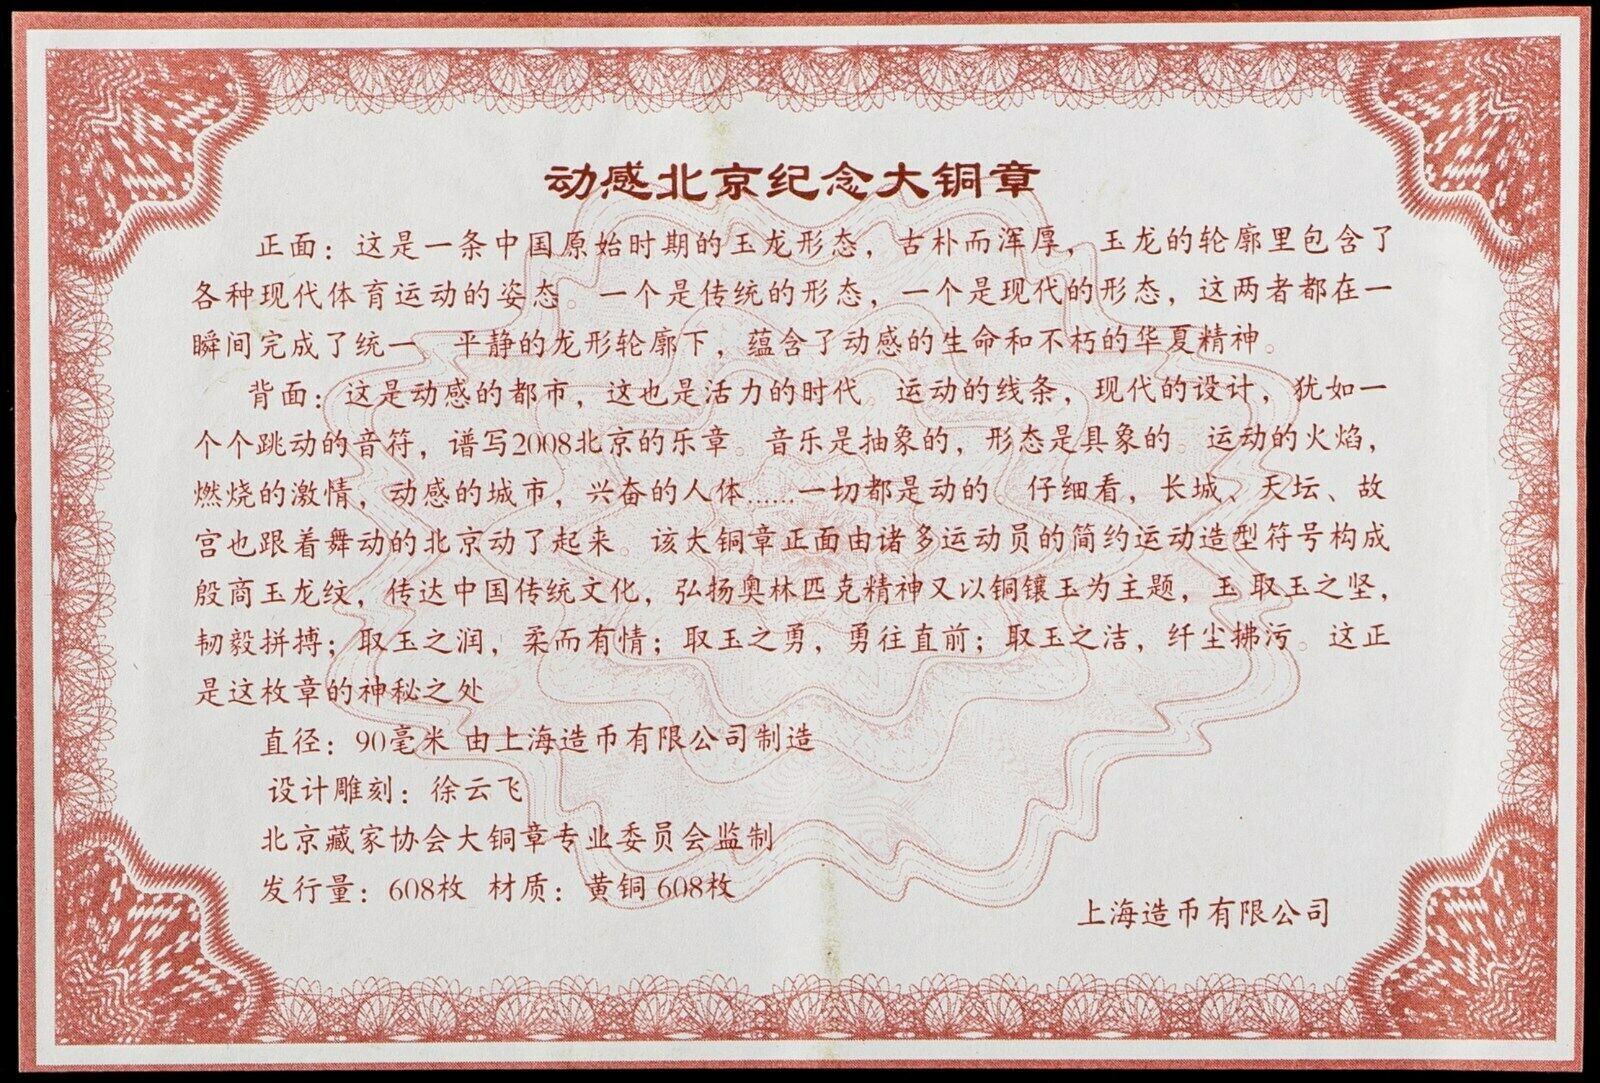 动感北京纪念大铜章
正面：这是一条中国原始时期的玉龙形态，古朴而浑厚，玉龙的轮廓里包含了
各种现代体育运动的姿态。一个是传统的形态，一个是现代的形态，这两者都在一
瞬间完成了统一 平静的龙形轮廓下，蕴含了动感的生命和不朽的华夏精神。
背面：这是动感的都市，这也是活力的时代 运动的线条，现代的设计，犹如一
个个跳动的音符，谱写2008北京的乐章。音乐是抽象的，形态是具象的。运动的火焰，
燃烧的激情，动感的城市，兴奋的人体……一切都是动的。仔细看，长城、天坛、故
宫也跟着舞动的北京动了起来。该大铜章正面由诸多运动员的简约运动造型符号构成
殷商玉龙纹，传达中国传统文化，弘扬奥林匹克精神又以铜镶玉为主题，玉 取玉之坚，
韧毅拼搏；取玉之润，柔而有情；取玉之勇，勇往直前；取玉之洁，纤尘拂污。这正
是这枚章的神秘之处
直径：90毫米 由上海造币有限公司制造
设计雕刻：徐云飞
北京藏家协会大铜章专业委员会监制
发行量：608枚 材质：黄铜 608枚
上海造币有限公司